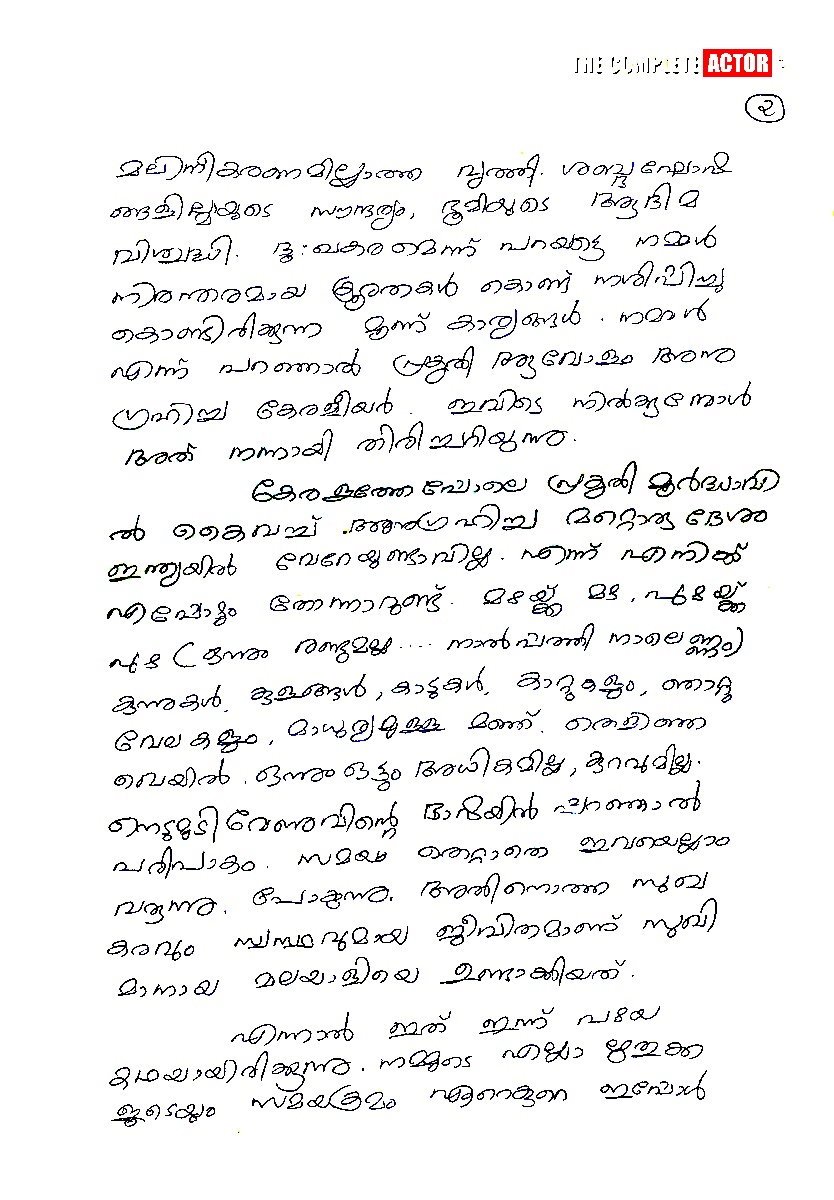 THE COMPLETE ACTOR
൨
മലിനീകരണമില്ലാത്ത വൃത്തി. ശബ്ദഘോഷ
ങ്ങളില്ലായുടെ സൗന്ദര്യം, ഭൂമിയുടെ ആദിമ
വിശുദ്ധി. ദുഃഖകരമെന്ന് പറയട്ടെ നമ്മൾ
നിരന്തരമായ ക്രൂരതകൾ കൊണ്ട് നശിപ്പിച്ചു
കൊണ്ടിരിക്കുന്ന മൂന്ന് കാര്യങ്ങൾ. നമ്മൾ
എന്ന് പറഞ്ഞാൽ പ്രകൃതി ആവോളം അനു
ഗ്രഹിച്ച കേരളീയർ. ഇവിടെ നിൽക്കുമ്പോൾ
അത് നന്നായി തിരിച്ചറിയുന്നു.
കേരളത്തെ പോലെ പ്രകൃതി മൂർദ്ധാവി
ൽ കൈവച്ച് അനുഗ്രഹിച്ച മറ്റൊരു ദേശം
ഇന്ത്യയിൽ വേറേയുണ്ടാവില്ല. എന്ന് എനിക്ക്
എപ്പോഴും തോന്നാറുണ്ട്. മഴയ്ക്ക് മഴ, പുഴയ്ക്ക്
പുഴ (ഒന്നും രണ്ടുമല്ല .... നാൽപ്പത്തി നാലെണ്ണം)
കുന്നുകൾ, കുളങ്ങൾ, കാടുകൾ, കാറ്റുകളും, ഞാറ്റു
വേലകളും, മാധുര്യമുള്ള മണ്ണ്. തെളിഞ്ഞ
വെയിൽ. ഒന്നും ഒട്ടും അധികമില്ല, കുറവുമില്ല.
നെടുമുടി വേണുവിന്റെ ഭാഷയിൽ പറഞ്ഞാൽ
പരിപാകം. സമയം തെറ്റാതെ ഇവയെല്ലാം
വരുന്നു. പോകുന്നു. അതിനൊത്ത സുഖ
കരവും സ്വസ്ഥവുമായ ജീവിതമാണ് സുഖി
മാനായ മലയാളിയെ ഉണ്ടാക്കിയത്.
എന്നാൽ ഇത് ഇന്ന് പഴയ
കഥയായിരിക്കുന്നു. നമ്മുടെ എല്ലാ ഋതുക്ക
ളുടെയും സമയക്രമം ഏറെക്കുറെ ഇപ്പോൾ